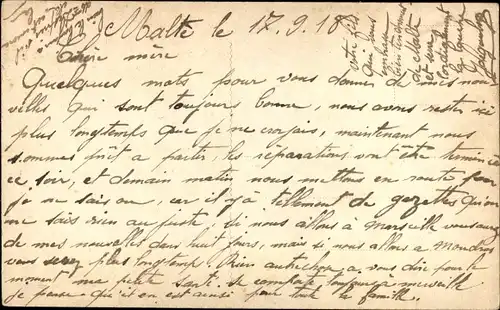 Malte le 17.9.18
Chère mère
Quelques mots pour vous donner de mes nou
velles qui sont toujours bonne, nous avons rester ici
plus longtemps que je ne croyais, maintenant nous
sommes prêt a partir, les réparations vont être terminée
ce soir, et demain matin nous mettons en route pour
je ne sais ou, car il y a tellement de gazettes qu'on
ne sais rien au juste, si nous allons à Marseille vous aurez
de mes nouvelles dans huit jours, mais si nous allons a Moudros
vous serez plus longtemps. Rien autre chose a vous dire pour le
moment ma petite santé se comporte toujours a merveille
je pense qu'il en est ainsi pour toute la famille.
votre fils
qui vous
embrasse
bien
de Malte
et